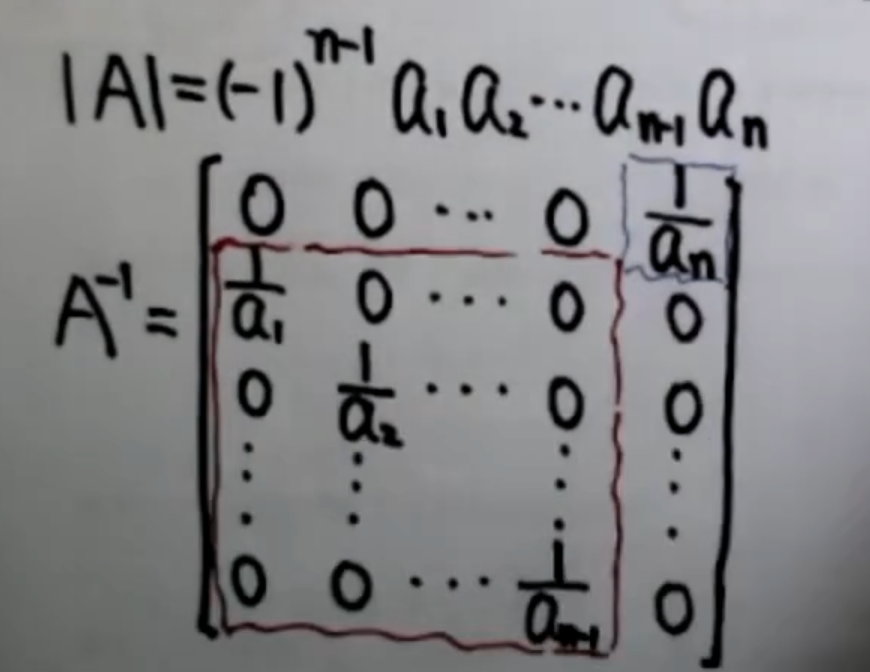 |A|=(-1)^{n-1} a₁ a₂ ··· a_{n-1} a_n
A^{-1} = [ 0 0 ··· 0 1/a_n
1/a₁ 0 ··· 0 0
0 1/a₂ ··· 0 0
⋮ ⋮ ⋮ ⋮
0 0 ··· 1/a_{n-1} 0 ]